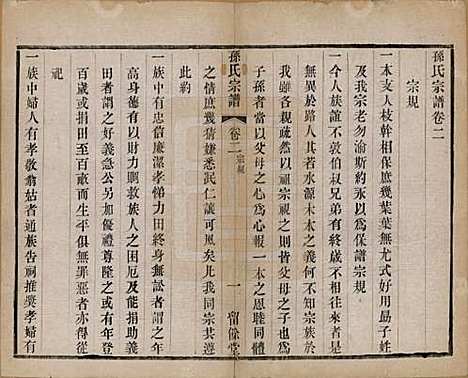 孫氏宗譜卷二
宗規
一本支人枝幹相保庶幾葉葉無尤式好用勗子姓
及我宗必斯萬年永以爲保譜宗規
一今人族誼不明伯叔兄弟有終年不相往來對面
無異於路人其若水源木本之義何不知宗族於
我雖有親疏然以祖宗視之則皆父母之遺體也爲
子孫者當以父母之心爲心報一本之恩睦同體
孫氏宗譜
卷二 宗規
一
留餘堂
之情庶幾猜嫌悉泯仁讓可風矣凡我同宗其遵
此約
一族中果有忠信廉潔孝悌力田終身無訟者或年
高身雖以財力救族人之困厄及能捐助義莊義
田者謂之好德亟加優禮尊隆之或有年登
百歲或近百歲而生平俱無罪惡者亦得從
祀
一族中婦人有孝敬翁姑者通族告祠推獎孝婦有